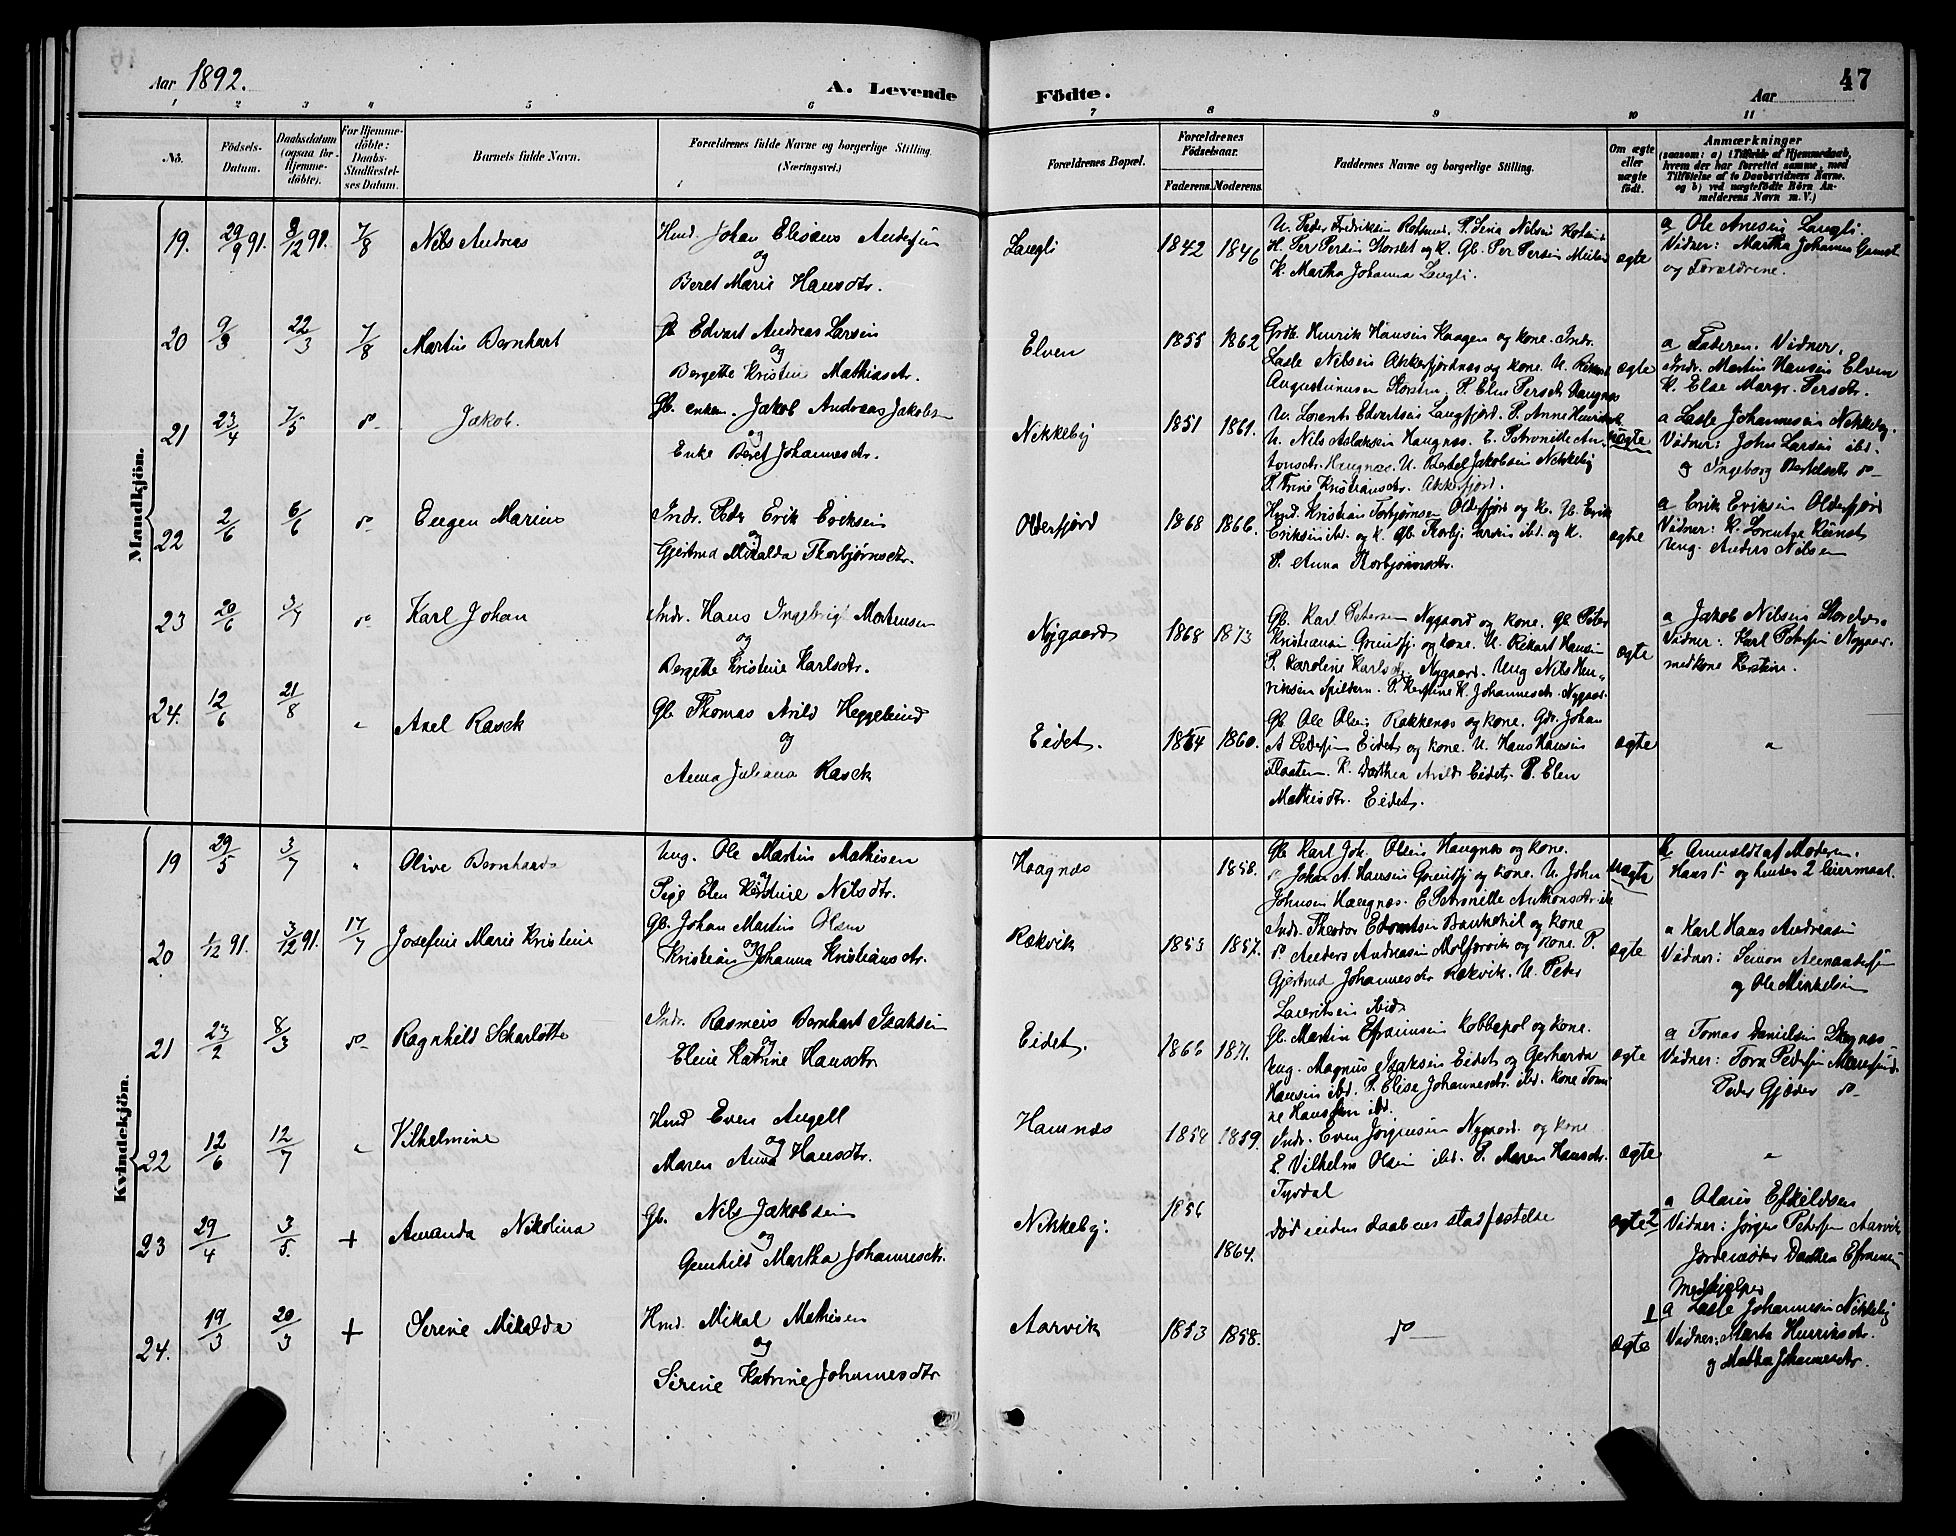 Aar 1892.
A. Levende
Födte.
Aar
47
1 2 3 4 5 6 7 8 9 10 11
No.
Födsels-Datum.
Daabsdatum (ogsaa for Hjemmedöbte).
For Hjemmedöbte: Daabs-Stadfæstelses Datum.
Barnets fulde Navn.
Forældrenes fulde Navne og borgerlige Stilling. (Næringsvei.)
Forældrenes Bopæl.
Forældrenes Födselsaar.
Faderens.
Moderens.
Faddernes Navne og borgerlige Stilling.
Om ægte eller uægte födt.
Anmærkninger
(saasom: a) i Tilfælde af Hjemmedaab, hvem der har forrettet samme, med Tilföielse af to Daabsvidners Navne, og b) ved uægtefödte Börn Anmelderens Navn m. V.)
Mandkjön.
19. 29/9 91. 8/12 91. 7/8 Nils Andreas
Johan Elisæus Andersen
og
Beret Marie Hansdtr.
Langli 1842 1846
U. Peder Fredriksen
H. Per Persen Storslet og K. Gb. Per Persen
K. Martha Johanna Langli.
ægte
a Ole Langli.
Vidner: Martha Johannes
og Forældrene.
20 9/3 22/3 7/8 Martin Bernhart
Gb Edvart Andreas Larsen
og
Bergette Kristine Mathiasdtr.
Elven 1855 1862
Henrik Hansen Haagen og kone. Indr.
Lasle Nilsen Akkerfjordnæs og kone. U. Rikart
Augustinusen Storsten, P. Elen Persdtr Haugnæs
ægte
a Faderen. Vidner.
Indr. Martin Hansen Elven
K. Else Margr. Persdtr.
21 23/4 7/5 do Jakob.
Gb. enkem. Jakob Andreas Jakobsen
og
Enke Beret Johannesdtr.
Nikkeby 1851 1861.
U. Lorents Edvartsen Langfjord. P. Anne
U. Nils Aslaksen Haugnæs. E. Petronelle An-
tonsdtr. Haugnæs. U. Bertel Jakobsen Nikkeby
P. Trine Kristiansdtr. Akkerfjord.
uægte
a Lasle Johannesen Nikkeby.
Vidner: John Larsen ibd.
og Ingeborg Bertelsdtr do
22 2/6 6/6 do Eugen Marius
Indr. Peder Erik Eriksen
og
Gjertrud Mikalda Thorbjørnsdtr.
Olderfjord 1868 1866.
Hmd. Kristian Torbjørnsen Olderfjord og K. Gb. Erik
Eriksen ibd. og K. Gb. Thorbj. Larsen ibd. og K.
P. Anna Thorbjørnsdtr.
ægte
a Erik Eriksen Olderfjord
Vidner: K. Lorentze
Ung. Anders Nilsen
23 20/6 3/7 do Karl Johan
Indr. Hans Ingebrigt Mortensen
og
Bergette Kristine Karlsdtr.
Nygaard 1868 1873
Gb. Karl Petersen Nygaard og kone. Gb. Peter
Kristiansen Grundfj. og kone. U. Rikart Hansen
P. Karoline Karlsdtr Nygaard. Ung Nils Hen-
riksen Spildern. P. Kerstine K. Johannesdtr. Nygaard
ægte
a Jakob Nilsen
Vidner: Karl Petersen Nygaard
med kone Kerstine.
24. 12/6 21/8 " Axel Rasck
Gb Thomas Arild Heggelund
og
Anna Juliana Rasck
Eidet. 1860.
Gb. Ole Olsen Rakkenæs og kone. Gdr. Johan
A Pedersen Eidet og kone. U. Hans Hansen
Flaaten. K. Dorthea Arild Eidet. P. Elen
Mathisdtr. Eidet.
ægte "
Kvindekjön.
19 29/5 3/7 " Olive Bernharda
Ung. Ole Martin Mathisen
og
Pige Elen Kerstine Nilsdtr.
Haagnæs 1858.
Gb Karl Joh. Olsen Haugnæs og kone.
do Johan A. Hansen Grundfj og kone. U. John
Johnsen Haugnæs. E Petronelle Anthonsdtr ib
uægte
b Anmeldt af Moderen.
Hans 1 og hendes 2 leiermaal.
20 1/12 91. 3/12 91. 17/7 Josefine Marie Kristine
Gb. Johan Martin Olsen
og
Kristiane Johanna Kristiansdtr.
Rækvik 1853 1857.
Indr. Theodor og kone
do Anders Andreasen og kone P.
Gjertrud Johannesdtr Rækvik. U. Peter
Lauritsen ibid.
ægte
a Karl Hans Andreasen
Vidner: Simon
og Ole Mikkelsen
21 23/2 8/3 do Ragnhild Scharlotte
Indr. Rasmus Bernhart Isaksen
og
Eline Katrine Hansdtr
Eidet. 1866 1871.
Gb. Martin Efraimsen Kobbepol og kone.
Ung. Magnus Isaksen Eidet og Gerharda
Hansen ibd. P. Elisa Johannesdtr. ibd. kone Tomi
ne Hansen ibd.
ægte
a Tomas Danielsen
Vidner: Tora Pedersen
Peder Gjæder do
22 12/6 12/7 " Vilhelmine
Hmd Even Angell
og
Maren Anna Hansdtr.
Hamnæs 1854 1859.
Indr. Even Jörgensen Nygaard og kone
E. Vilhelm Olsen ibd. P. Maren Hansdtr.
Tyvdal
ægte "
23 29/4 3/5. + Amanda Nikolina
Gb. Nils Jakobsen
og
Gunhild Martha Johannesdtr.
Nikkeby. 1856
1864.
død inden daabens stadfæstelse
ægte 2
a Olaus Eskildsen
Vidner: Jörgen Petersen Aarvik
Jordemoder Dorthea Efraimsen
Medhjælper
24. 19/3 20/3 + Serine Mikalda
Hmd. Mikal Mathisen
og
Serine Katrine Johannesdtr
Aarvik 1853 1858.
do
1
ægte
a Lasle Johannesen Nikkeby
Vidner: Marta Henriksdtr.
og Martha Johannesdtr.